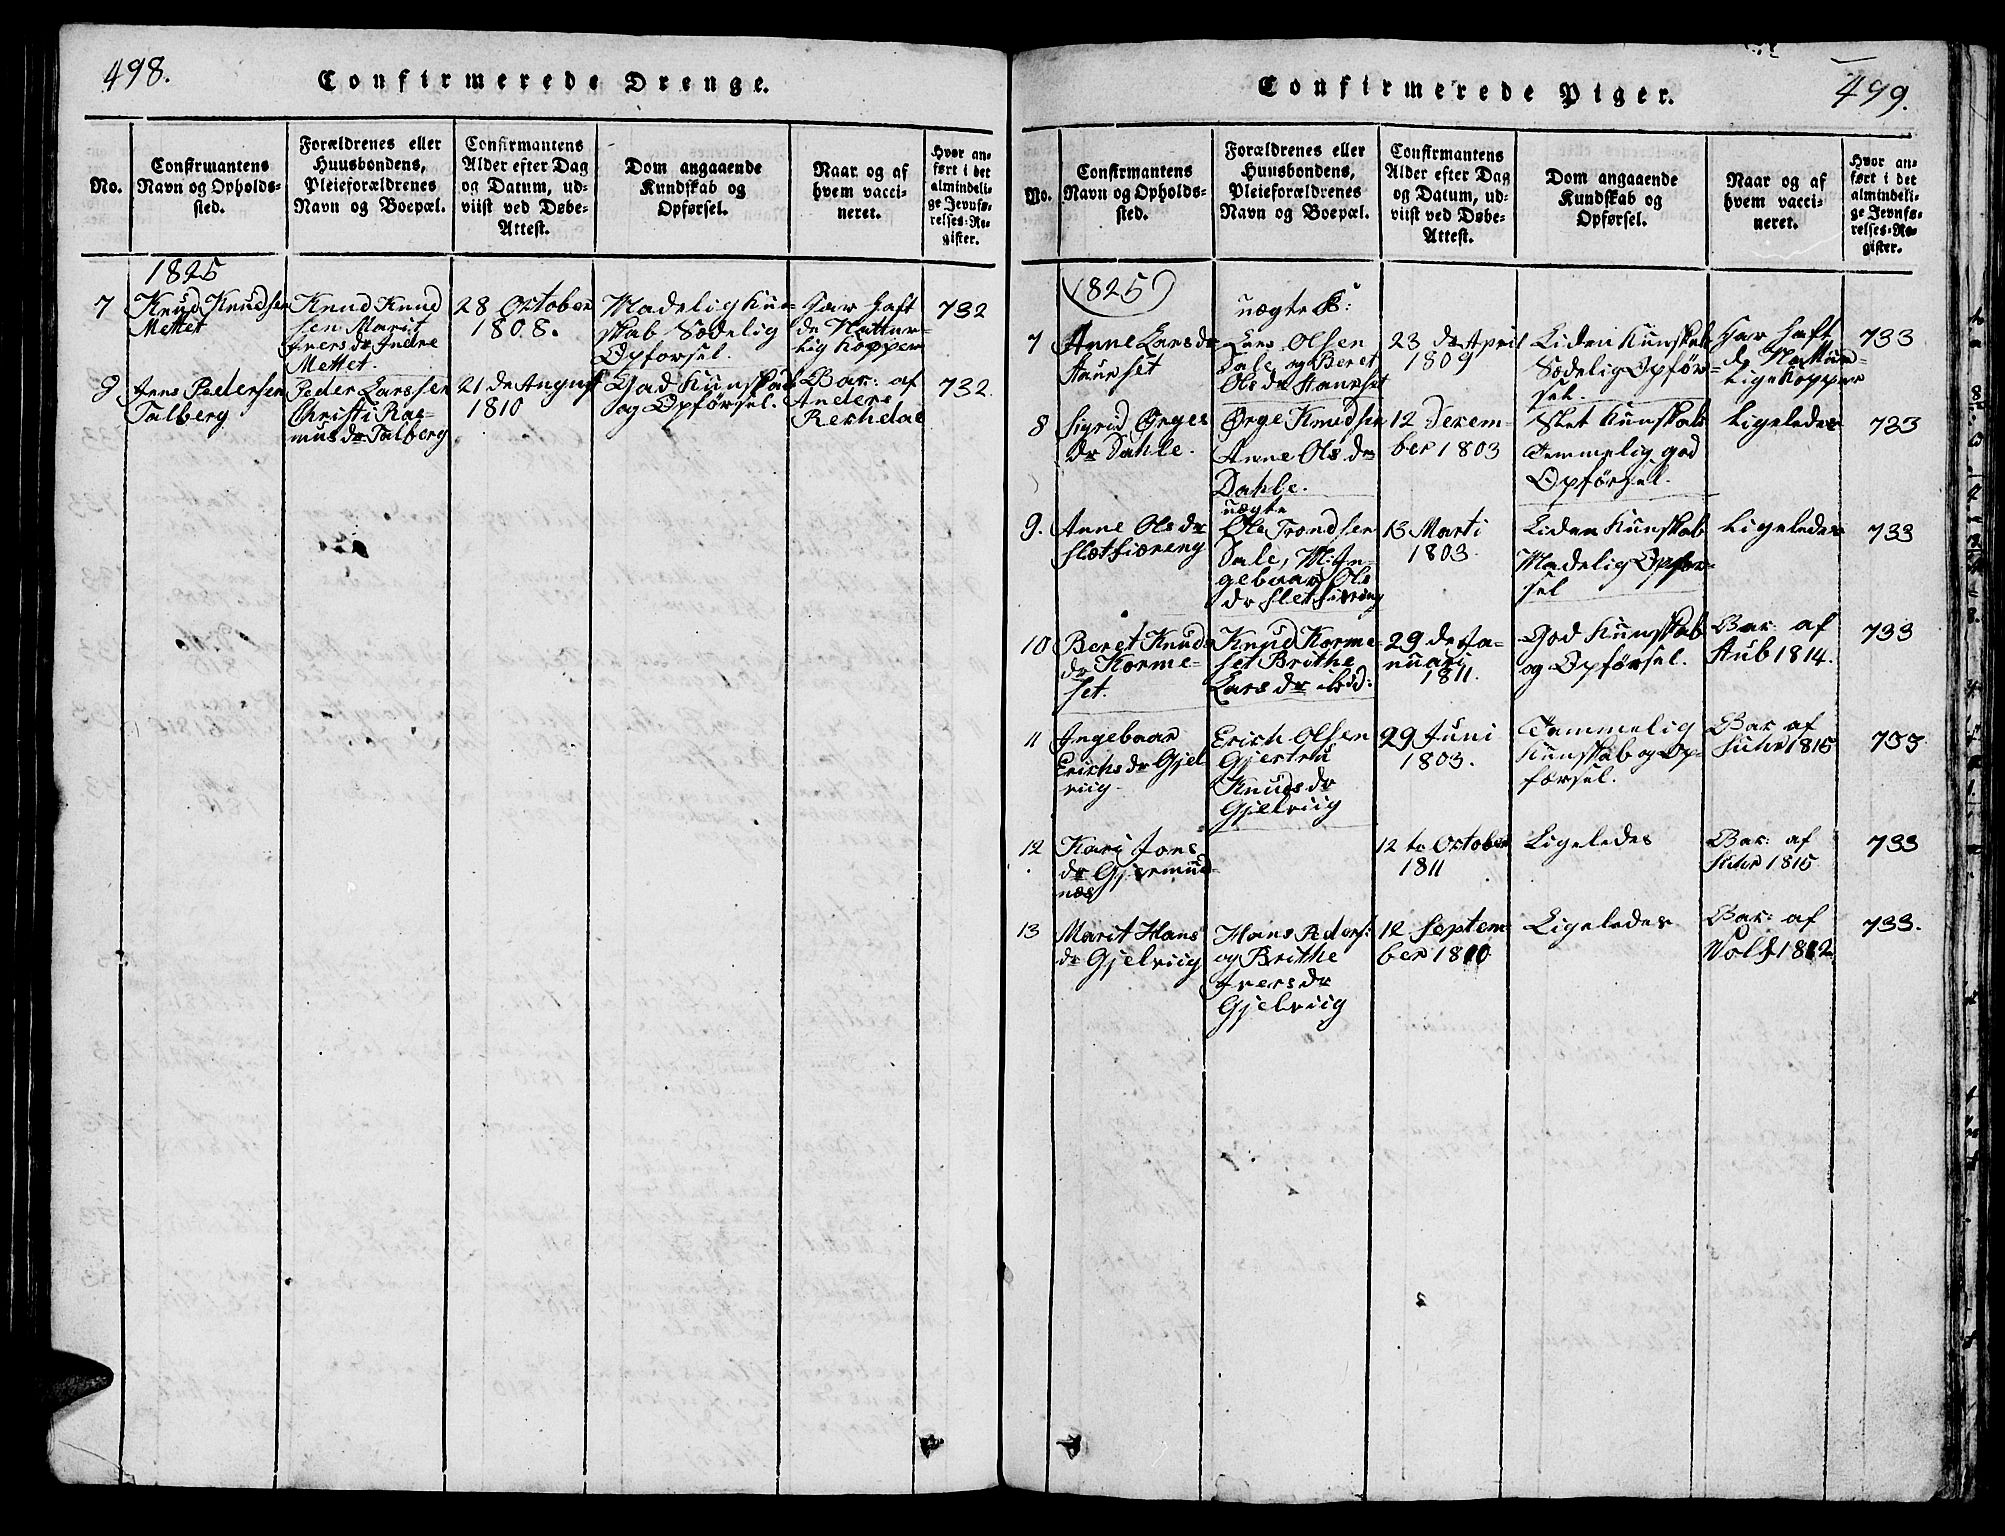 498.
Confirmerede Drenge.
No.
Confirmantens
Navn og Opholds-
sted.
Forældrenes eller
Huusbondens,
Pleieforældrenes
Navn og Boepæl.
Confirmantens
Alder efter Dag
og Datum, ud-
viist ved Døbe-
Attest.
Dom angaaende
Kundskab og
Opførsel.
Naar og af
hvem vacci-
neret.
Hvor an-
ført i det
almindeli-
ge Jevnfø-
relses-Re-
gister.
1825
7
Knud Knudsen
Mettet
Knud Knud
sen Marit
Ivers dr Indre
Mettet.
28 October
1808.
Madelig Kun-
skab Sødelig
Opforsel.
Har haft
de Natur-
lig Kopper
732
9
Jens Pedersen
Talberg
Peder Larssen
Christi Ras-
mus dr Talberg
21 de August
1810
God Kunskab
og Opførsel.
Bak: af
Anders
Rekdal
732.
499.
Confirmerede Piger.
No.
Confirmantens
Navn og Opholds-
sted.
Forældrenes eller
Huusbondens,
Pleieforældrenes
Navn og Boepæl.
Confirmantens
Alder efter Dag
og Datum, ud-
viist ved Døbe-
Attest.
Dom angaaende
Kundskab og
Opførsel.
Naar og af
hvem vacci-
neret.
Hvor an-
ført i det
almindeli-
ge Jevnfø-
relses-Re-
gister.
1825
7
Anne Lars dr
Haurset
uægte B:
Lars Olsen
Dale og Beret
Ols dr Haurset
23 de April
1809
Liden Kunskab
Sødelig Opfør-
sel.
Har haft
de Nattur-
lige Kopper
733
8
Sigrid Ørges
dr Dahle.
Ørge Knudsen
Anne Ols dr
Dahle.
12 Decem-
ber 1803
Slet Kunskab
Temmelig god
Opførsel.
Ligeledes
733
9.
Anne Ols dr
Sletfiæreng
uægte
Ole Trondsen
Dale, M: In-
gebaar Ols
dr Sletfiæring
13 Marti
1803.
Liden Kunskab
Madelig Opfør-
sel
Ligeledes
733
10
Beret Knuds
dr Korme-
set.
Knud Korme-
set Brithe
Lars dr ibid:
29 de Ja-
nuari
1811.
God Kunskab
og Opførsel.
Bak: af
Aub 1814.
733
11
Ingebaar
Erichs dr Gjel
viig.
Erich Olsen
Gjertru
Knuds dr
Gjelviig
29 Juni
1803.
Temmelig
Kunskab og Op-
førsel.
Bak: af
Suhr 1815
733
12
Kari Jons
dr Gjermund
næs
12 te October
1811
Ligeledes
Bak: af
Suhr 1815
733
13
Marit Hans
dr Gjelviig
Hans Peders:
og Brithe
Ivers dr
Gjelviig
12 Septem
ber 1810
Ligeledes
Bak: af
Volf 1812
733.